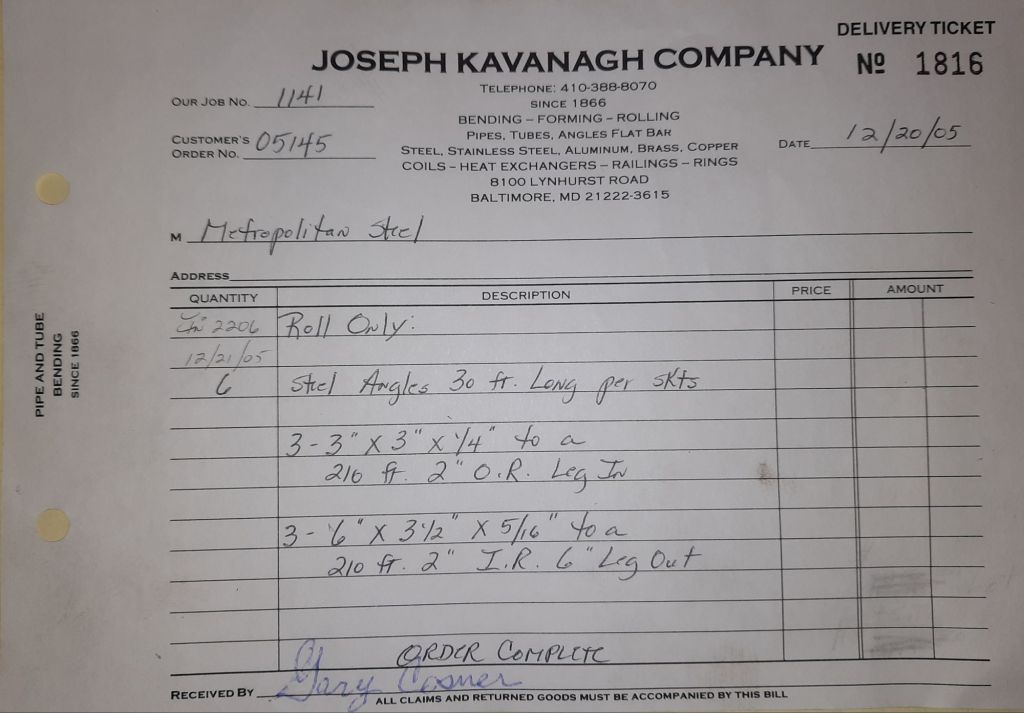 DELIVERY TICKET
JOSEPH KAVANAGH COMPANY
Nº 1816
TELEPHONE: 410-388-8070
SINCE 1866
BENDING – FORMING – ROLLING
PIPES, TUBES, ANGLES FLAT BAR
STEEL, STAINLESS STEEL, ALUMINUM, BRASS, COPPER
COILS – HEAT EXCHANGERS – RAILINGS – RINGS
8100 LYNHURST ROAD
BALTIMORE, MD 21222-3615
OUR JOB NO. 1141
CUSTOMER'S
ORDER NO. 05145
DATE 12/20/05
M Metropolitan Steel
ADDRESS
QUANTITY DESCRIPTION PRICE AMOUNT
2206 Roll Only:
12/21/05
6 Steel Angles 30 ft. Long per skts
3 - 3" X 3" X 1/4" to a
210 ft. 2" O.R. Leg In
3 - 6" X 3 1/2" X 5/16" to a
210 ft. 2" I.R. 6" Leg Out
ORDER COMPLETE
RECEIVED BY Gary
ALL CLAIMS AND RETURNED GOODS MUST BE ACCOMPANIED BY THIS BILL
PIPE AND TUBE
BENDING
SINCE 1866